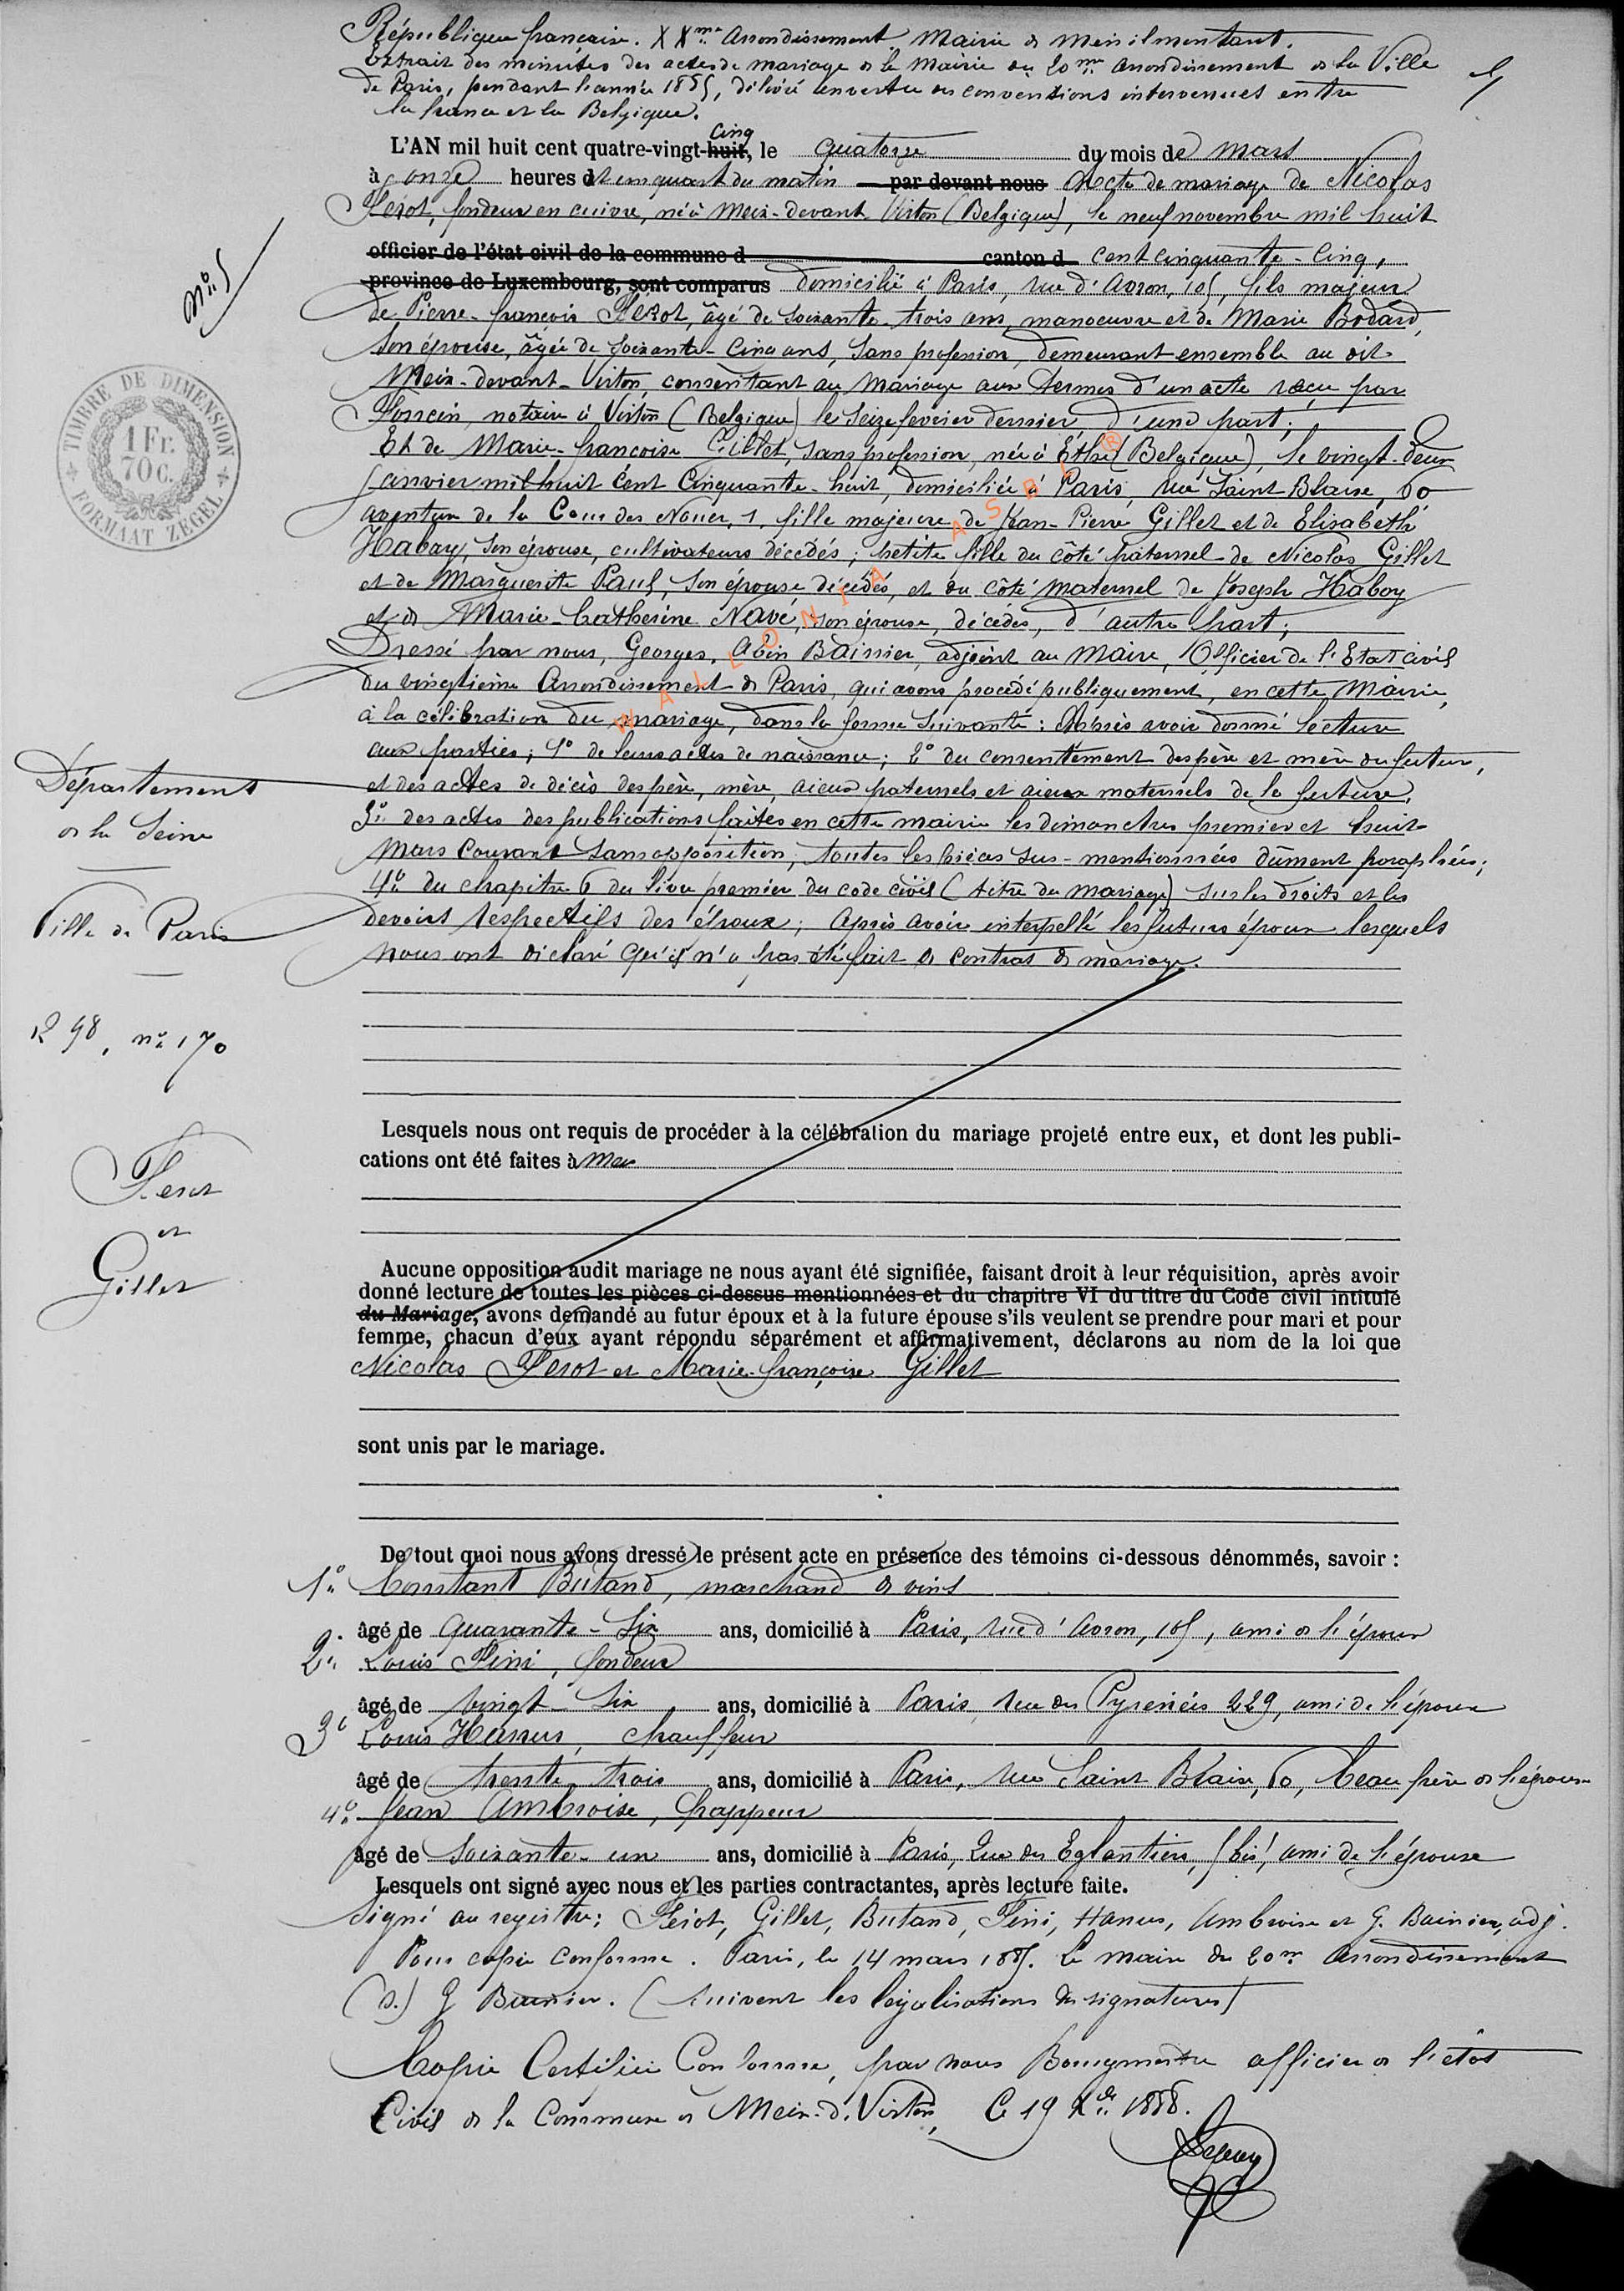 République française. XXme Arrondissement Mairie de Menilmontant.
Extrait des minutes des actes de mariage de la Mairie du 20me Arrondissement de la Ville
de Paris, pendant l'année 1885, délivré en vertu des conventions intervenues entre
la france et la Belgique.
5
L'AN mil huit cent quatre-vingt-huit, cinq le quatorze du mois de mars
à onze heures et un quart du matin par devant nous Acte de mariage de Nicolas
Ferot, fondeur en cuivre, né à Meix-devant Virton (Belgique), le neuf novembre mil huit
officier de l'état civil de la commune d canton d cent cinquante-cinq,
province de Luxembourg, sont comparus domicilié à Paris, rue d'Avron, 105, fils majeur
de Pierre-françois Férot, âgé de soixante-trois ans, manoeuvre et de Marie Bodard,
son épouse, âgée de soixante-cinq ans, sans profession, demeurant ensemble au dit
Meix-devant-Virton, consentant au mariage aux termes d'un acte reçu par
notaire à Virton (Belgique) le seize fevrier dernier, d'une part;
Et de Marie-françoise Gillet, sans profession, née à Ethe (Belgique), le vingt-deux
janvier mil huit cent cinquante-huit, domiciliée à Paris, rue Saint Blaise, 60
avant de la Cour des Noues, 1, fille majeure de Jean-Pierre Gillet et de Elisabeth
Habay, son épouse, cultivateurs décédés; petite fille du côté paternel de Nicolas Gillet
et de Marguerite Paul, son épouse, décédés, et du côté maternel de Joseph Habay
et de Marie-Catherine Navé, son épouse, décédés, d'autre part;
Dressé par nous, Georges, Bainier, adjoint au Maire, Officier de l'Etat civil
du vingtième Arrondissement de Paris, qui avons procédé publiquement, en cette Mairie,
à la célébration du mariage, dans la forme suivante: Après avoir donné lecture
aux parties; 1° de leurs actes de naissance; 2° du consentement des père et mère du futur,
et des actes de décès des père, mère, aieux paternels et aieux maternels de la future,
3° des actes des publications faites en cette mairie les dimanches premier et huit
Mars courant sans opposition, toutes les pièces sus-mentionnées dûment paraphées;
4° du chapitre 6 du livre premier du code civil (titre du mariage) sur les droits et les
devoirs respectifs des époux; Après avoir interpellé les futurs époux lesquels
nous ont déclaré qu'il n'a pas été fait de contrat de mariage.
N° 5
TIMBRE DE DIMENSION
1 FR.
70 C.
FORMAAT ZEGEL
Département
de la Seine
Ville de Paris
R 98, n° 170
Ferot
et
Gillet
WALLONIA ASBL ®
Lesquels nous ont requis de procéder à la célébration du mariage projeté entre eux, et dont les publi-
cations ont été faites à Mei
Aucune opposition audit mariage ne nous ayant été signifiée, faisant droit à leur réquisition, après avoir
donné lecture de toutes les pièces ci-dessus mentionnées et du chapitre VI du titre du Code civil intitulé
du Mariage, avons demandé au futur époux et à la future épouse s'ils veulent se prendre pour mari et pour
femme, chacun d'eux ayant répondu séparément et affirmativement, déclarons au nom de la loi que
Nicolas Ferot et Marie-françoise Gillet
sont unis par le mariage.
De tout quoi nous avons dressé le présent acte en présence des témoins ci-dessous dénommés, savoir :
1° Constant Butand, marchand de vins
âgé de quarante-six ans, domicilié à Paris, rue d'Avron, 105, ami de l'époux
2° Louis Fini, fondeur
âgé de vingt-six ans, domicilié à Paris, rue des Pyrenées 229, ami de l'époux
3° Louis Hanus, chauffeur
âgé de trente trois ans, domicilié à Paris, rue Saint Blaise, 60, beau frère de l'épouse
4° Jean Ambroise, frappeur
âgé de soixante-un ans, domicilié à Paris, rue des Eglantiers, 5 bis, ami de l'épouse
Lesquels ont signé avec nous et les parties contractantes, après lecture faite.
Signé au registre: Ferot, Gillet, Butand, Fini, Hanus, Ambroise et G. Bainier, adj.
Pour copie conforme. Paris, le 14 mars 1885. Le maire du 20me Arrondissement
(s.) G Bainier. (suivent les légalisations des signatures)
Copie Certifiée Conforme, par nous Bourgmestre officier de l'état
Civil de la Commune de Meix-d.-Virton, Ce 19 Xbre 1888.